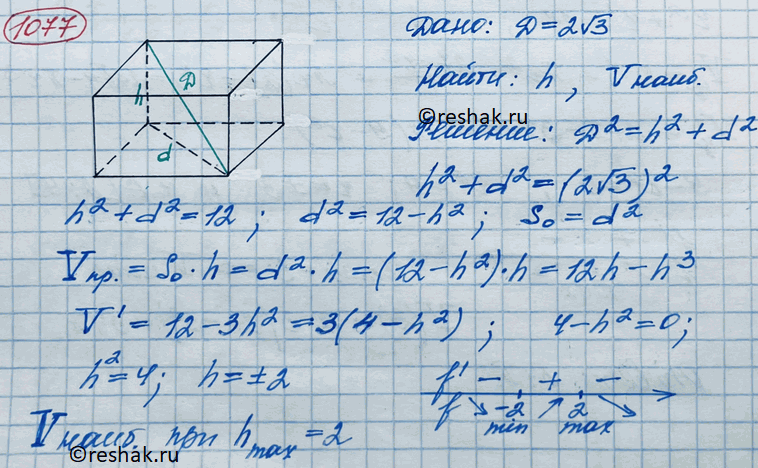 1077
Дано: D=2√3
h D d
Найти: h, V наиб.
©reshak.ru
Решение: D²=h²+d²
h²+d²=(2√3)²
h²+d²=12; d²=12-h²; S₀=d²
Vпр.=S₀·h=d²·h=(12-h²)·h=12h-h³
V'=12-3h²=3(4-h²); 4-h²=0;
h²=4; h=±2
f' - + -
f ↘ -2 ↗ 2 ↘
min max
V наиб. при h max=2
©reshak.ru